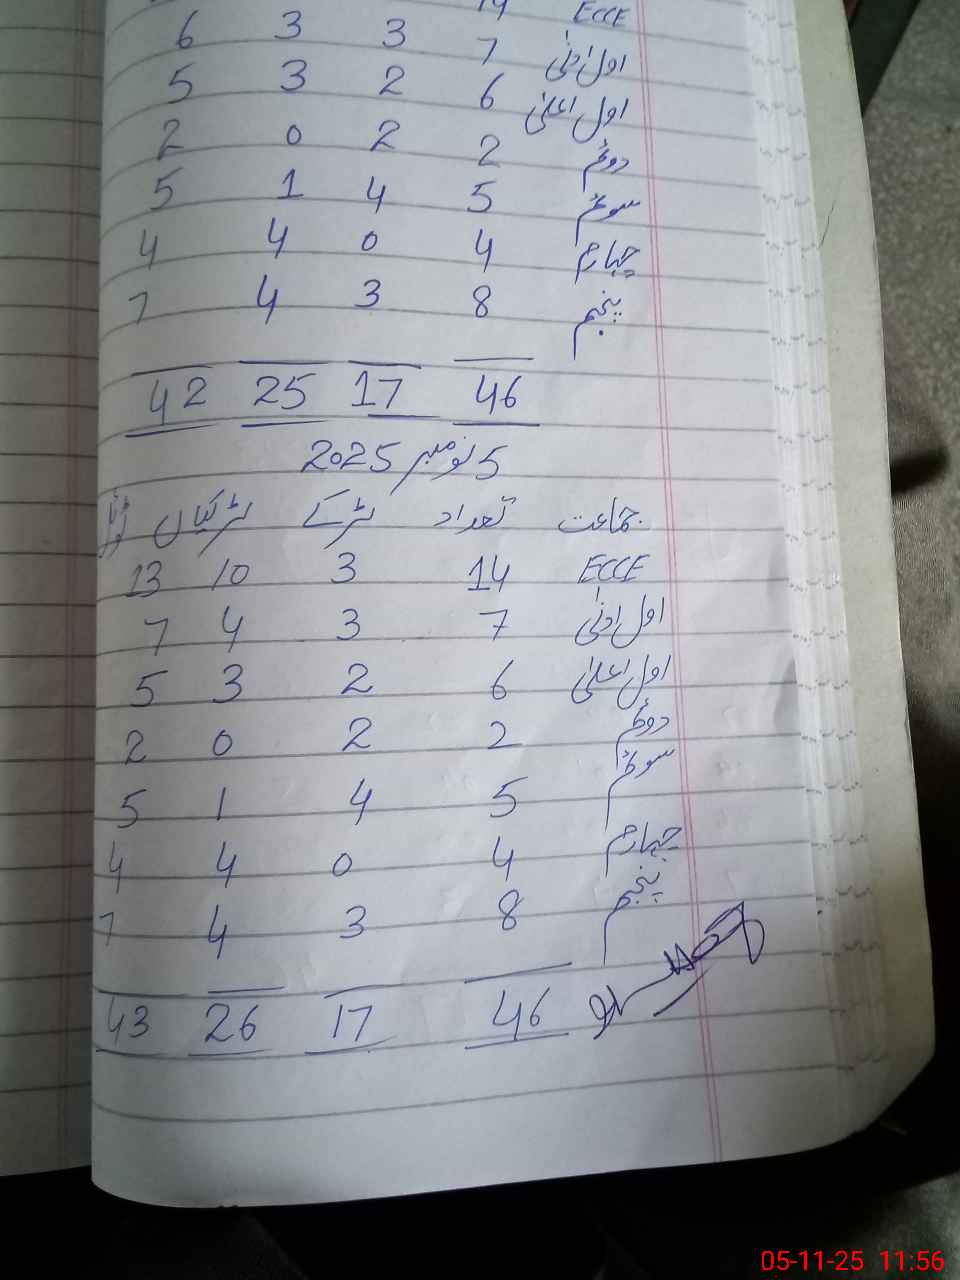 ECCE 14
اول ادنیٰ 7 3 3 6
اول اعلیٰ 6 2 3 5
دوئم 2 2 0 2
سوئم 5 4 1 5
چہارم 4 0 4 4
پنجم 8 3 4 7
46 17 25 42
5 نومبر 2025
جماعت تعداد لڑکے لڑکیاں ٹوٹل
ECCE 14 3 10 13
اول ادنیٰ 7 3 4 7
اول اعلیٰ 6 2 3 5
دوئم 2 2 0 2
سوئم 5 4 1 5
چہارم 4 0 4 4
پنجم 8 3 4 7
46 17 26 43
05-11-25 11:56